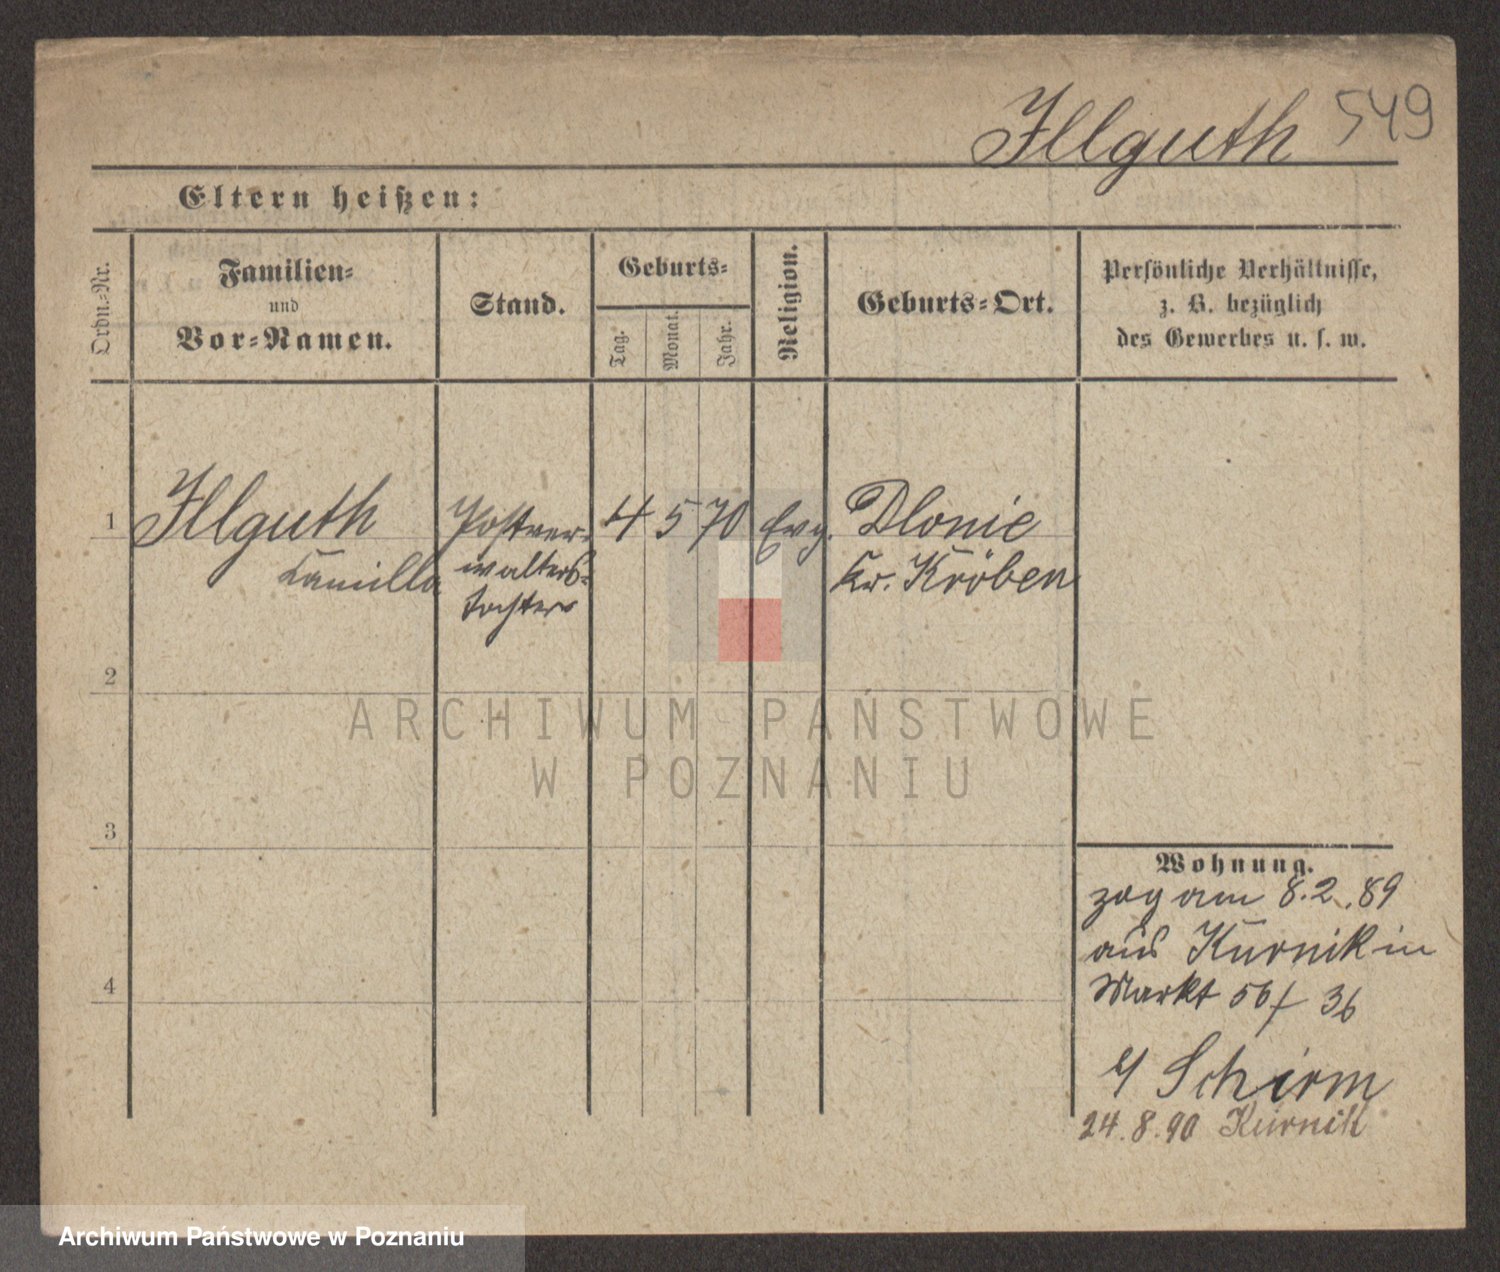 Illguth 549
Eltern heißen:
Ordn.-Nr.
Familien-
und
Vor-Namen.
Stand.
Geburts-
Tag.
Monat.
Jahr.
Religion.
Geburts-Ort.
Persönliche Verhältnisse,
z. B. bezüglich
des Gewerbes u. s. w.
1 Illguth Postver- 4 5 70 Evg. Dlonie
Camilla walters- Kr. Kröben
tochter
2
3
4
Wohnung.
zog am 8.2.89
aus Kurnik in
Markt 56/ 36
b/ Schirm
24.8.90 Kurnik
ARCHIWUM PAŃSTWOWE
W POZNANIU
Archiwum Państwowe w Poznaniu